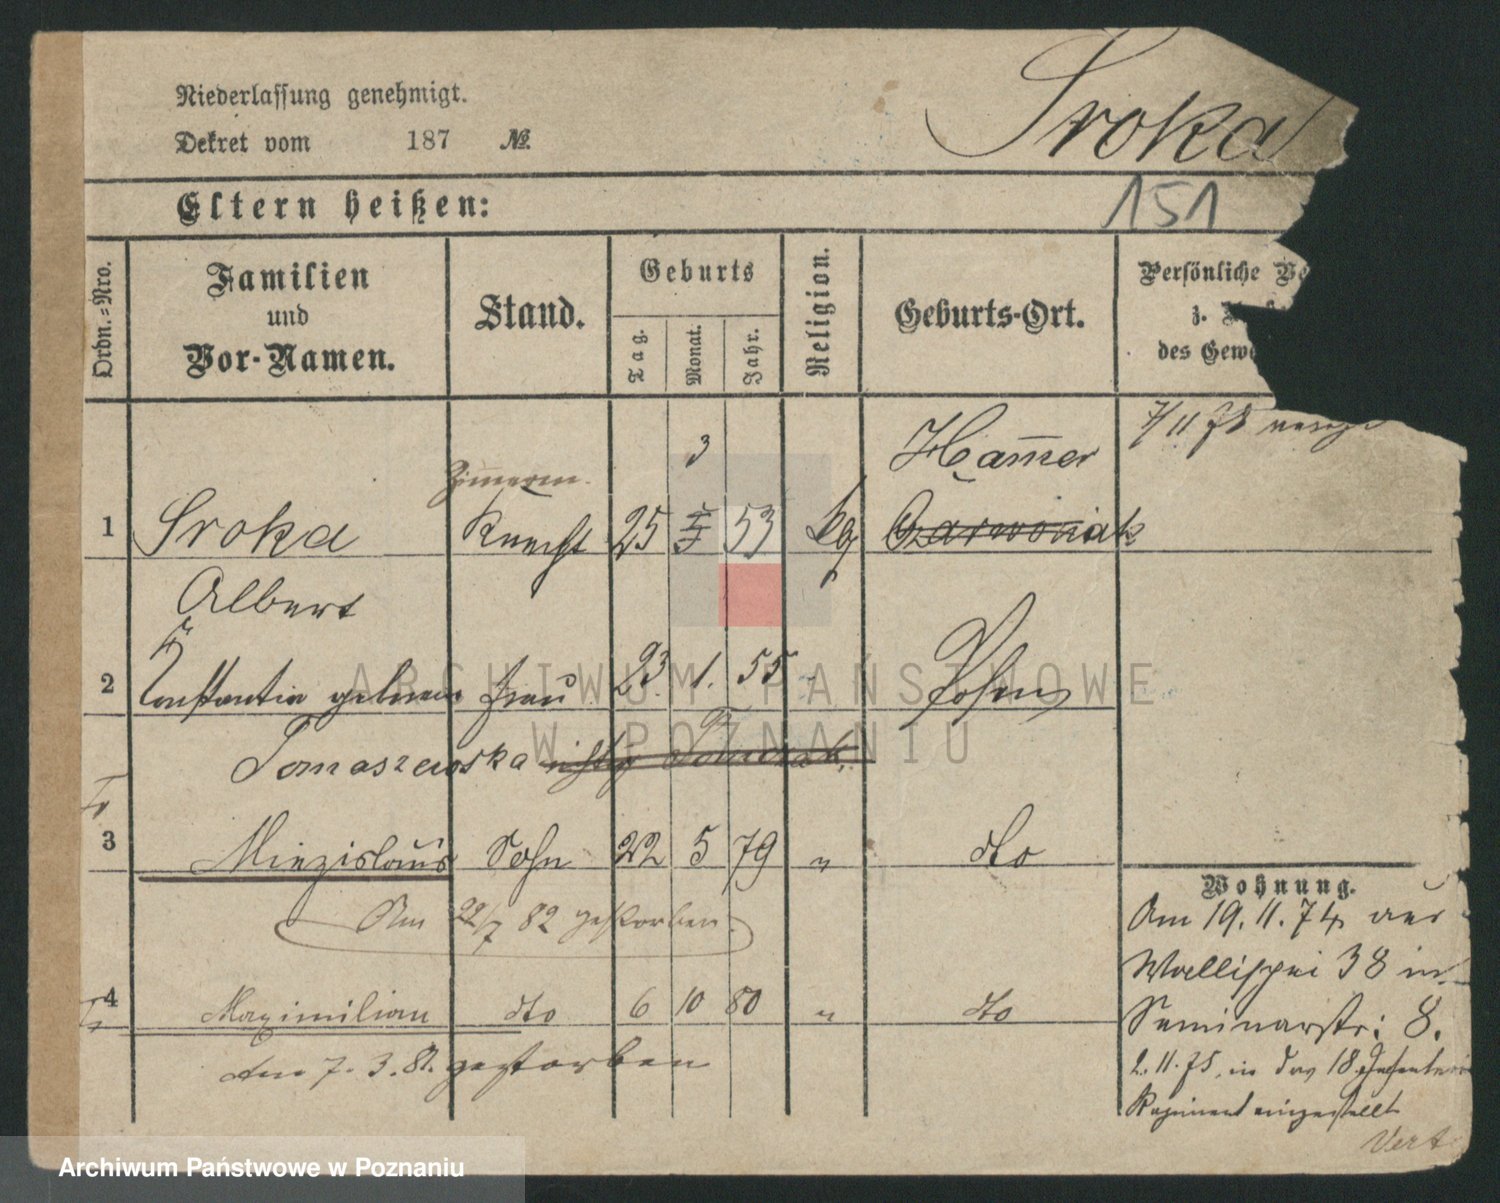 Sroka
Niederlassung genehmigt.
Dekret vom 187 №.
Eltern heißen:
151
Ordn.-Nro.
Familien
und
Vor-Namen.
Stand.
Geburts
Tag.
Monat.
Jahr.
Religion.
Geburts-Ort.
Persönliche
z.
des Gewe
3
Ham̄er
7/11 75
Zim̄erm.
1 Sroka Knecht 25 5 53 kg Czarwoniak
Albert
2 Konstantia geborne Frau 23. 1. 55 Posen
Tomaszewska
3 Miezislaus Sohn 22 5 79 " dto
Am 22/7 82 gestorben
4 Maximilian dto 6 10 80 " dto
Am 7. 3. 82. gestorben
Wohnung.
Am 19. 11. 74 aus
Wallischei 38 in
Seminarstr: 8.
2. 11. 75. in das 18. Infanterie
Regiment eingestellt
Vert
ARCHIWUM PAŃSTWOWE
W POZNANIU
Archiwum Państwowe w Poznaniu